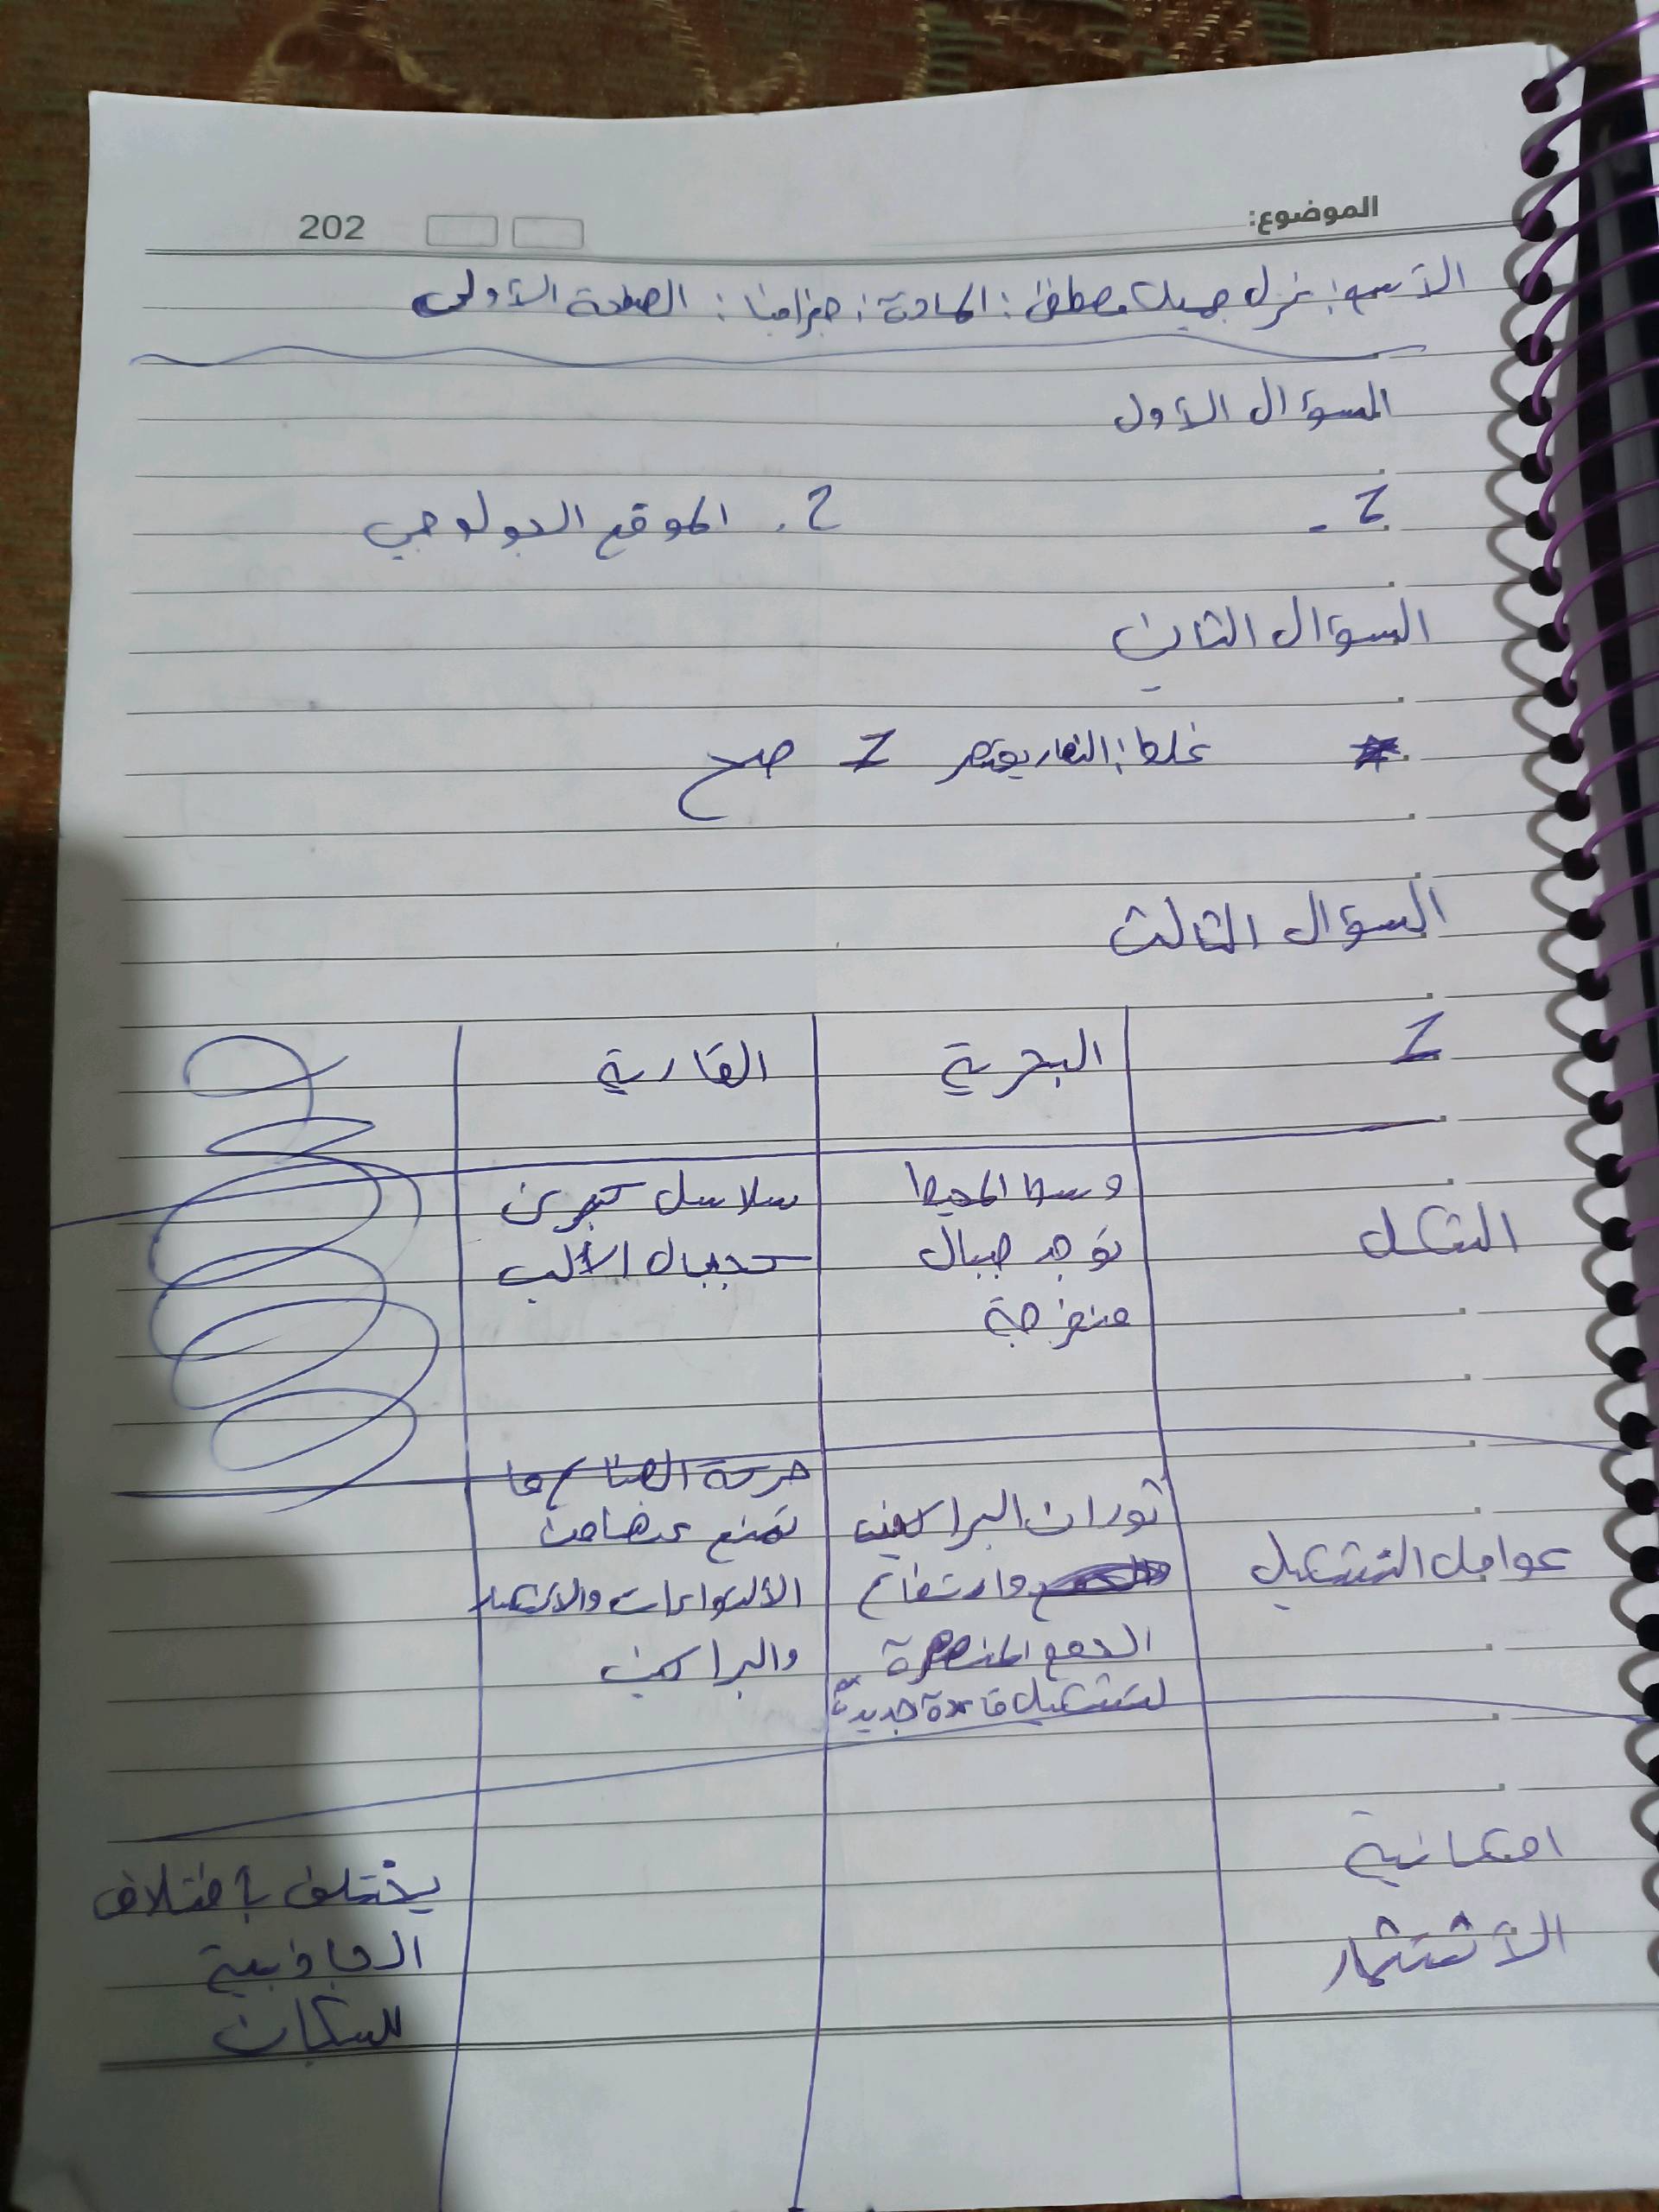 الموضوع:
202
الأسم: نزل جميل مصطفى: المادة: جغرافيا: الصفحة الأولى
السؤال الأول
2. الموقع الجولوجي
السؤال الثاني
غلط: التضاريس 1 صح
السؤال الثالث
1 البحرية القارية
الشكل
وسط المحيط
توجد جبال
منفرجة
سلاسل كبرى
كجبال الألب
عوامل التشكيل
ثوران البراكين
وارتفاع
الحمم المنصهرة
لتشكيل قارة جديدة
حركة الصفائح وما
تمنع عنها من
الألتواءات والانكسار
والبراكين
امكانية
الأستثمار
يختلف بأختلاف
الجاذبية
للسكان